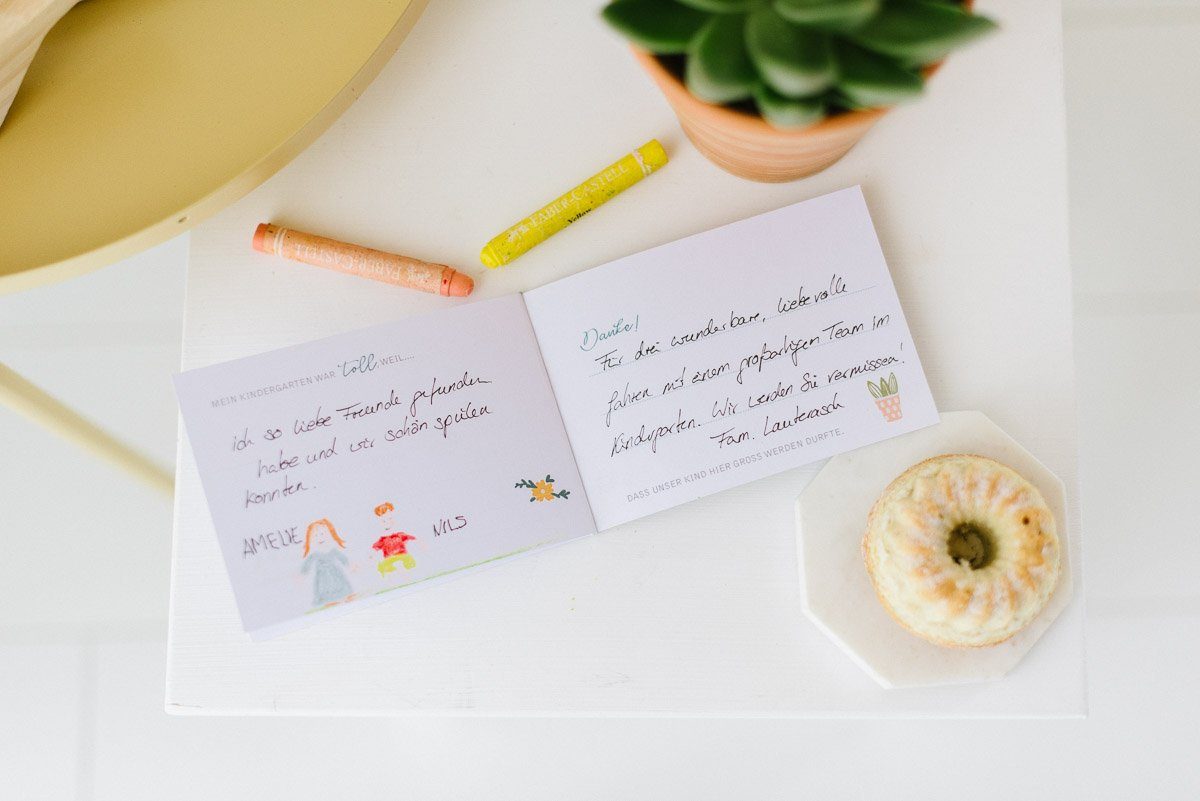 FABER-CASTELL
Yellow
FABER-CASTELL
MEIN KINDERGARTEN WAR toll, WEIL....
ich so liebe Freunde gefunden
habe und wir schön spielen
konnten.
AMELIE
NILS
Danke!
Für drei wunderbare, liebevolle
Jahren mit einem großartigen Team im
Kindergarten. Wir werden Sie vermissen!
Fam. Lauterasch
DASS UNSER KIND HIER GROSS WERDEN DURFTE.